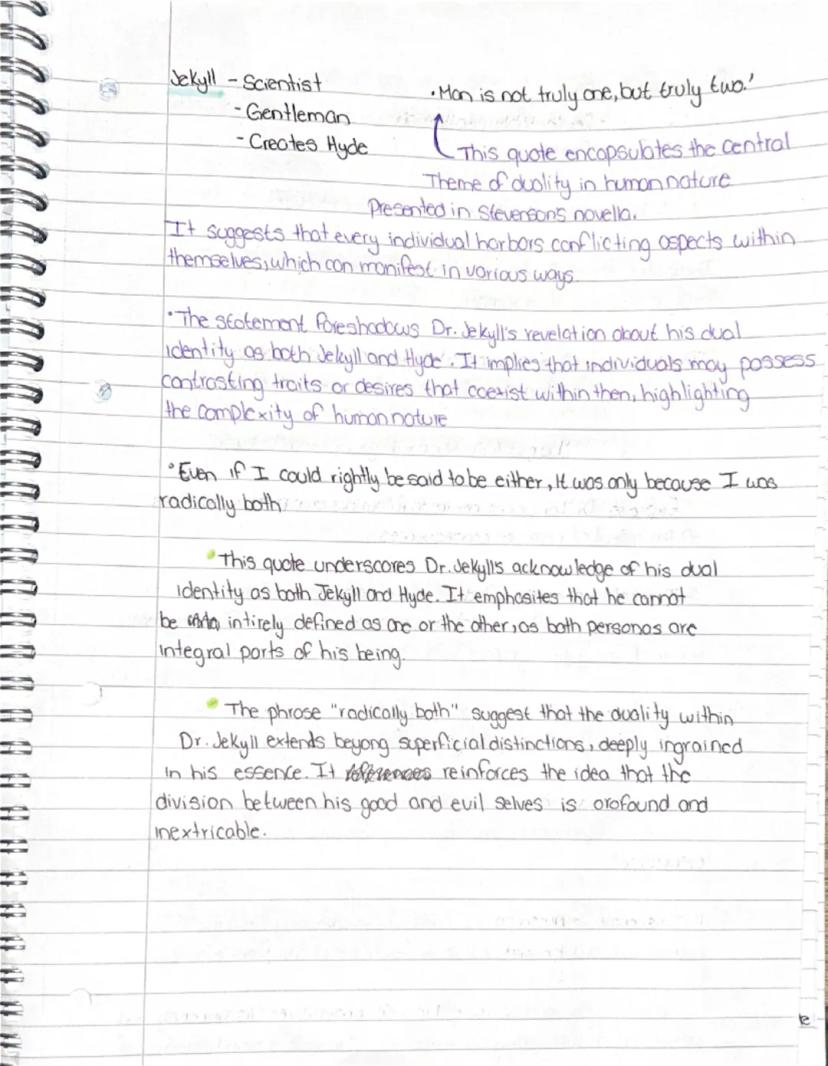 Jekyll - Scientist
- Gentleman
- Creates Hyde
• Man is not truly one, but truly two.'
This quote encapsulates the central
Theme of duality in human nature
Presented in Stevenson's novella.
It suggests that every individual harbors conflicting aspects within
themselves, which can manifest in various ways.
• The statement foreshadows Dr. Jekyll's revelation about his dual
identity as both Jekyll and Hyde. It implies that individuals may possess
contrasting traits or desires that coexist within then, highlighting
the complexity of human nature
• Even if I could rightly be said to be either, it was only because I was
radically both
• This quote underscores Dr. Jekylls acknowledge of his dual
identity as both Jekyll and Hyde. It emphasites that he cannot
be intirely defined as one or the other, as both personas are
integral parts of his being.
• The phrase "radically both" suggest that the duality within
Dr. Jekyll extends beyong superficial distinctions, deeply ingrained
in his essence. It references reinforces the idea that the
division between his good and evil selves is orofound and
inextricable.